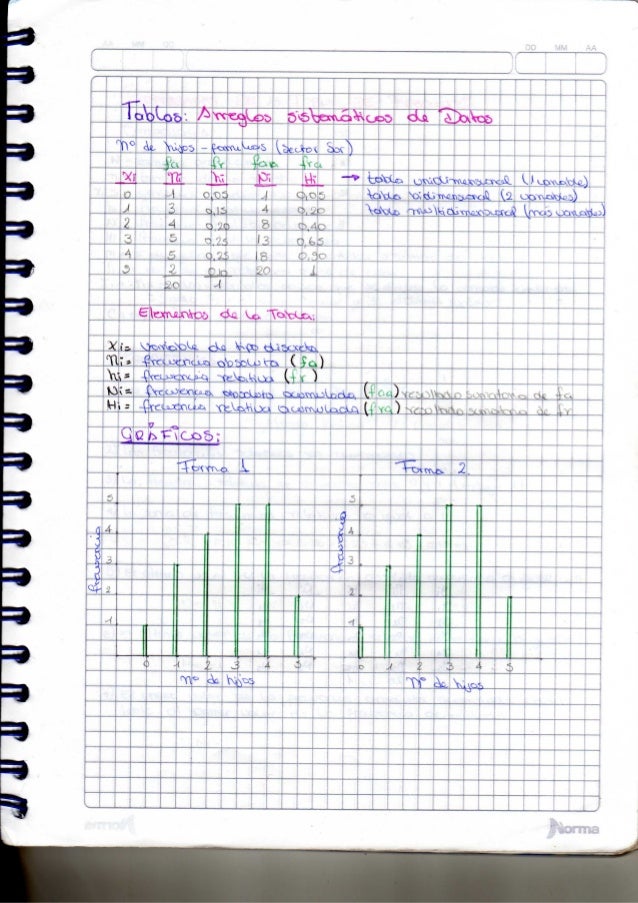 DD MM AA
Tablas: Arreglos sistemáticos de Datos
nº de hijos - familias (sector Sur)
fa fr faa fra
Xi ni hi Ni Hi → tabla unidimensional (1 variable)
0 1 0,05 1 0,05 tabla bidimensional (2 variables)
1 3 0,15 4 0,20 tabla multidimensional (más variables)
2 4 0,20 8 0,40
3 5 0,25 13 0,65
4 5 0,25 18 0,90
5 2 0,10 20 1
20 1
Elementos de la Tabla:
Xi = Variable de tipo discreta
ni = frecuencia absoluta (fa)
hi = frecuencia relativa (fr)
Ni = frecuencia absoluta acumulada (faa) resultado sumatoria de fa
Hi = frecuencia relativa acumulada (fra) resultado sumatoria de fr
GRÁFICOS:
Forma 1 Forma 2
5 5
4 4
3 3
2 2
1 1
frecuencia frecuencia
0 1 2 3 4 5 0 1 2 3 4 5
nº de hijos nº de hijos
Norma